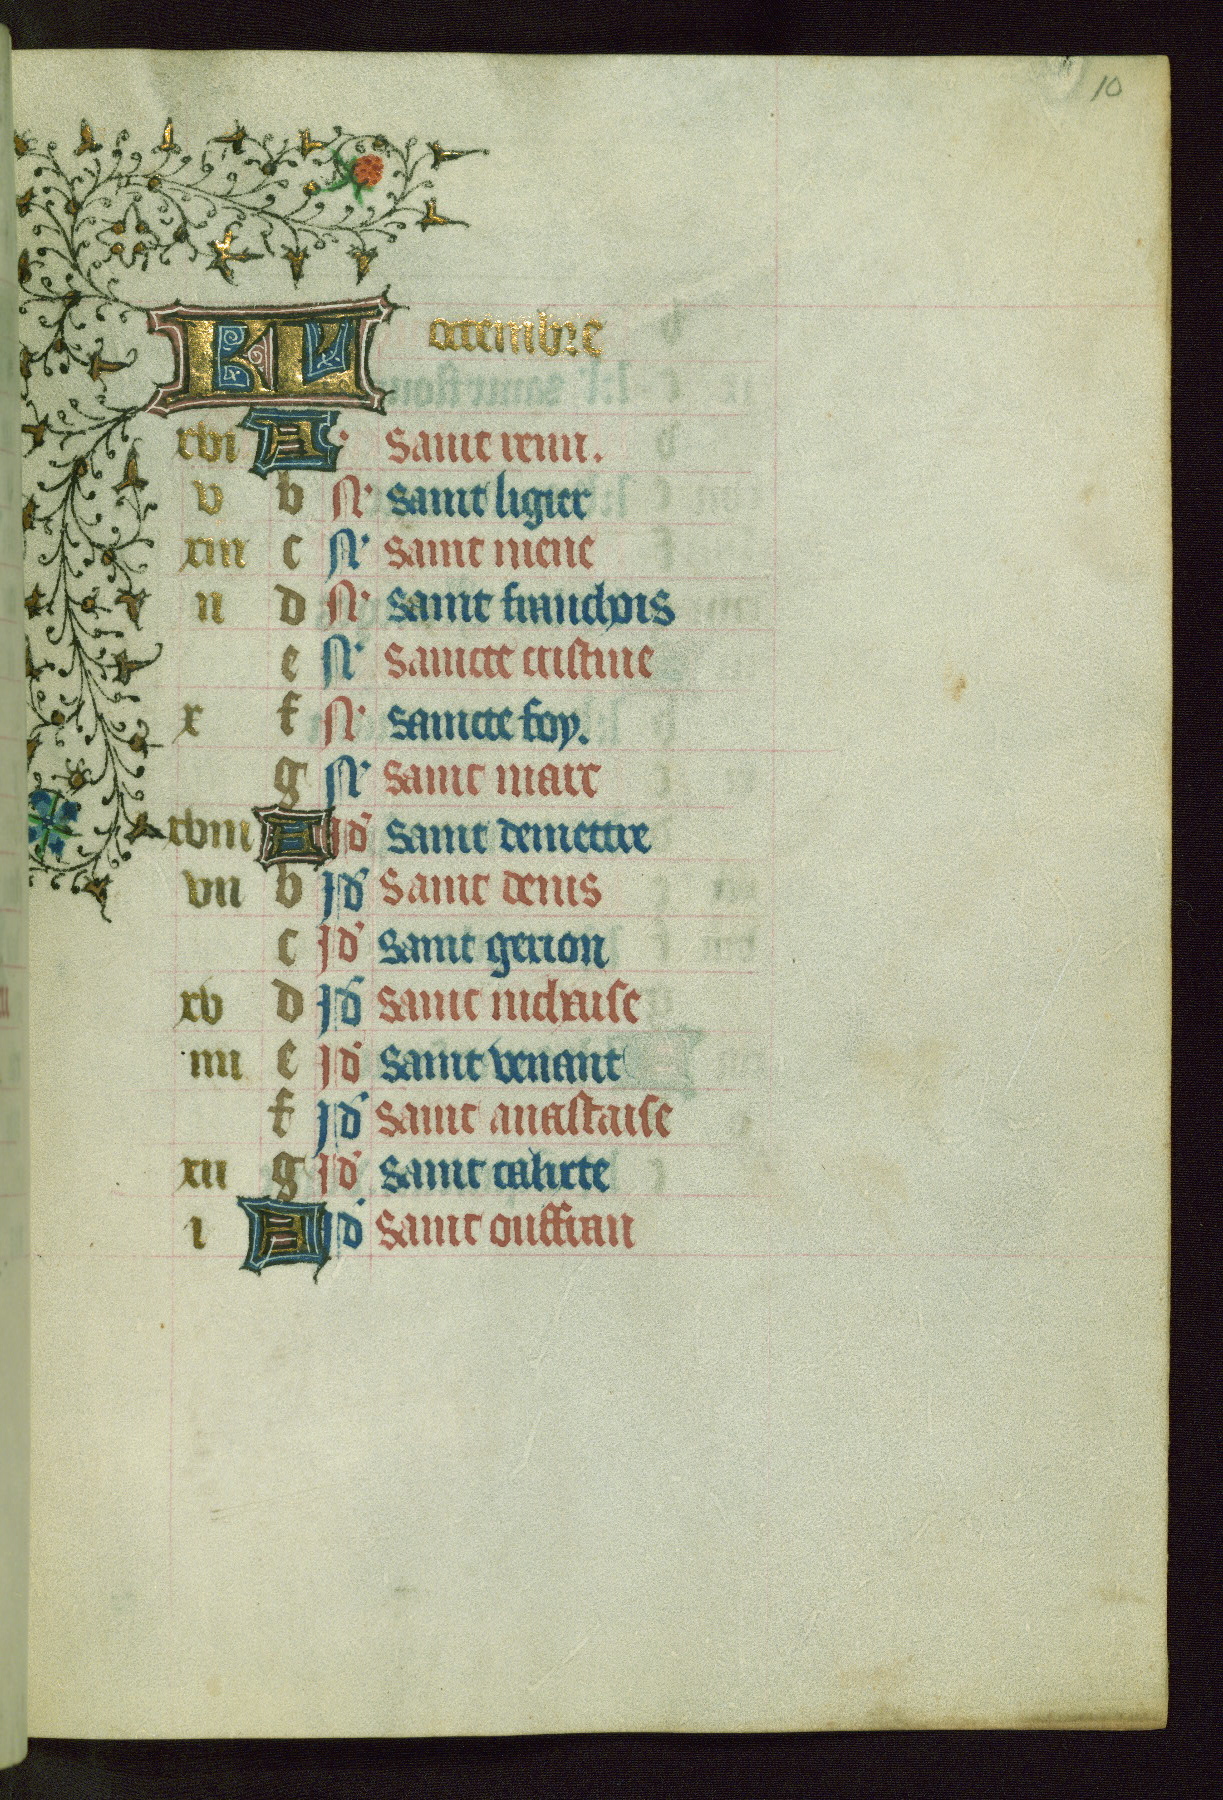 10
KL octembre
xvi A saint remi.
v b N saint ligier
xiii c N saint niene
ii d N saint franchois
e N saincte cristine
x f N saincte foy.
g N saint marc
xviii A Id saint demettre
vii b Id saint denis
c Id saint gerion
xv d Id saint nichaise
iiii e Id saint venant
f Id saint anastaise
xii g Id saint calixte
i A Id saint oulfran